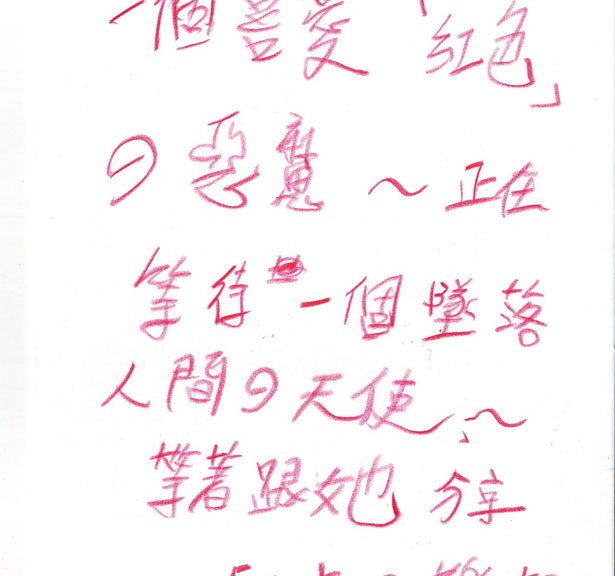 一個喜愛「紅色」
の惡魔～正在
等待一個墜落
人間の天使～
等著跟她分享